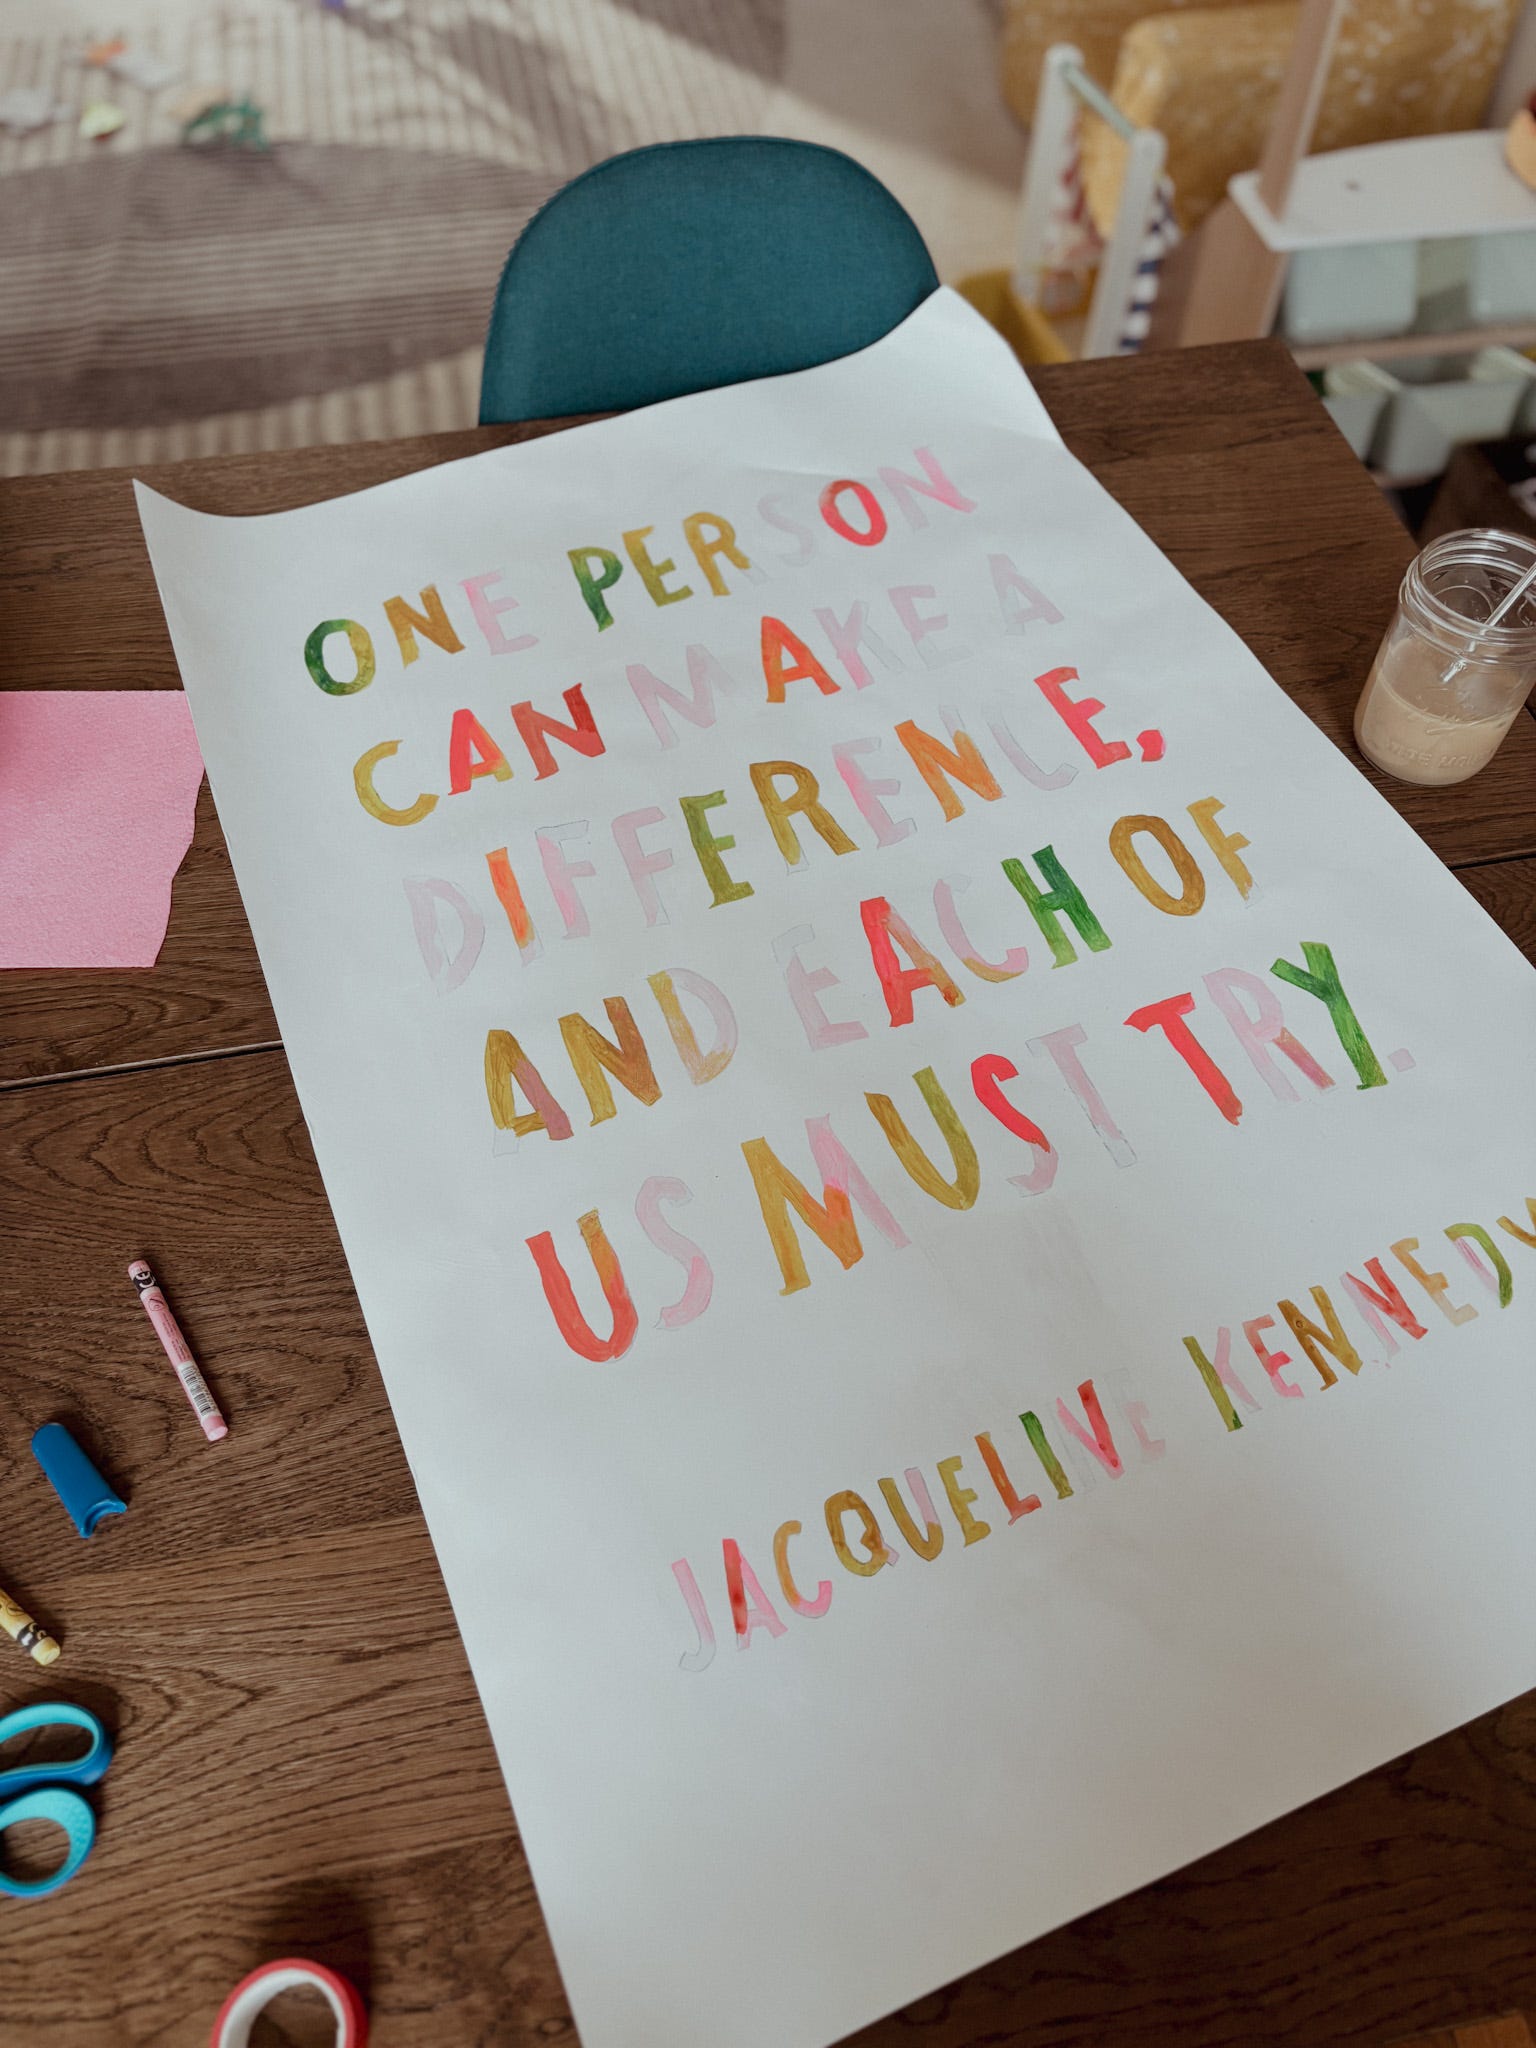 ONE PERSON
CAN MAKE A
DIFFERENCE,
AND EACH OF
US MUST TRY.
JACQUELINE KENNEDY